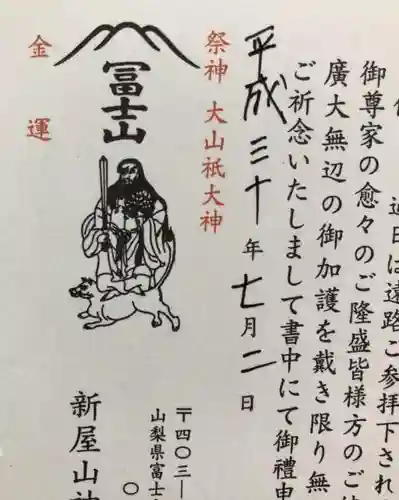 近日は遠路ご参拝下され
御尊家の愈々のご隆盛皆様方のご
廣大無辺の御加護を戴き限り無
ご祈念いたしまして書中にて御禮申
平成三十年七月二日
祭神 大山祇大神
冨士山
金運
〒四〇三―
山梨県富士
〇
新屋山神